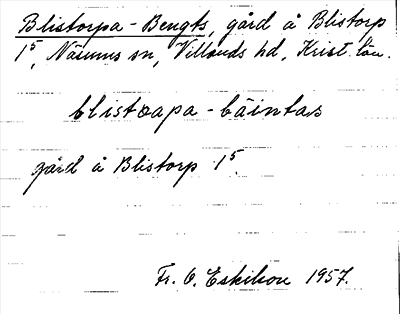 Blistorpa - Bengts, gård å Blistorp
1⁵, Näsums sn, Villands hd, Krist. län.
blistɷapa - bäintas
gård å Blistorp 1⁵.
Fr. O. Eskilson 1957.